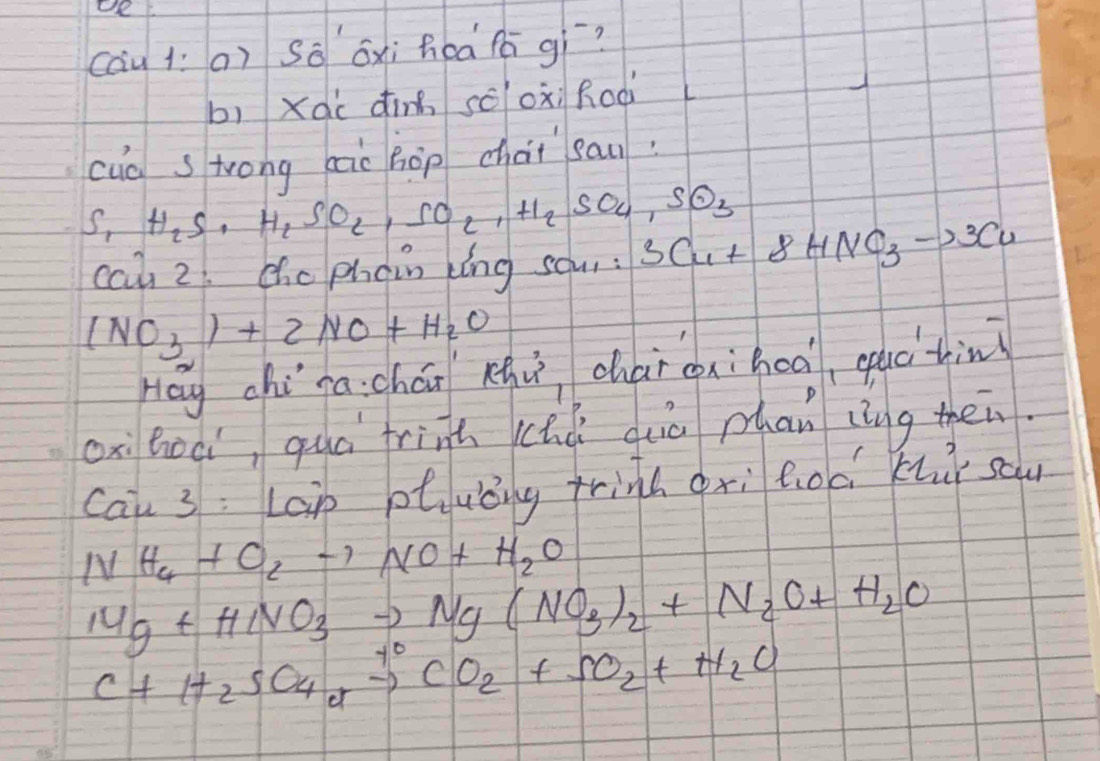 Câu 1: a) Số ôxi hoá là gì?
b) Xác định số oxi hoá
của S trong các hợp chất sau:
S, H₂S, H₂SO₂, SO₂, H₂SO₄, SO₃
Câu 2: Cho phản ứng sau: 3Cu + 8HNO₃ → 3Cu
(NO₃) + 2NO + H₂O
Hãy chỉ ra: chất khử, chất oxi hoá, quá trình
oxi hoá, quá trình khử của phản ứng trên.
Câu 3: Lập phương trình oxi hoá khử sau
NH₄ + O₂ → NO + H₂O
Mg + HNO₃ → Mg(NO₃)₂ + N₂O + H₂O
C + H₂SO₄ đ t° → CO₂ + SO₂ + H₂O